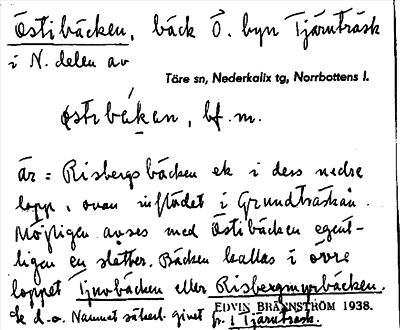 Östibäcken, bäck Ö. byn Tjärnträsk
i N. delen av
Töre sn, Nederkalix tg, Norrbottens l.
bf. m.
är = Risbergsbäcken ek i dess nedre
lopp, ovan inflödet i Grundträskån.
Möjligen avses med Östibäcken egent-
ligen en slåtter. Bäcken kallas i övre
loppet Tjuvbäcken eller Risbergmyrbäcken.
ek d.o. Namnet säkerl. givet fr. i Tjärnträsk.
EDVIN BRÄNNSTRÖM 1938.